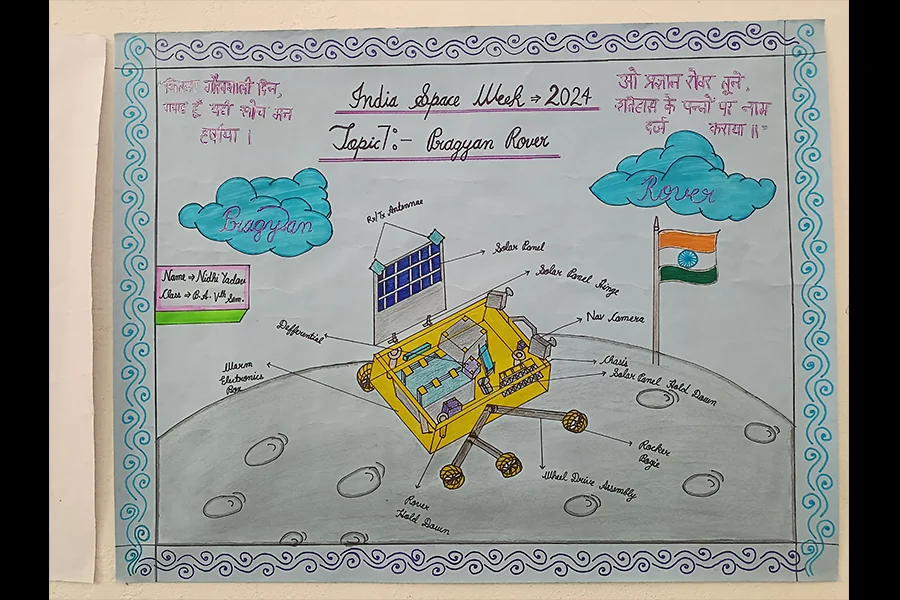 गौरवशाली दिन,
हर्षाया ।
India Space Week → 2024
Topic 7:- Pragyan Rover
ओ प्रज्ञान रोवर तूने,
इतिहास के पन्नों पर नाम
दर्ज कराया ॥
Pragyan
Rover
Name → Nidhi Yadav
Class → B.A. Vth Sem.
Rx/Tx Antennae
Solar Panel
Solar Panel Hinge
Nav Camera
Chasis
Solar Panel Hold Down
Defferential
Warm
Electronics
Box
Rocker
Bogie
Wheel Drive Assembly
Rover
Hold Down